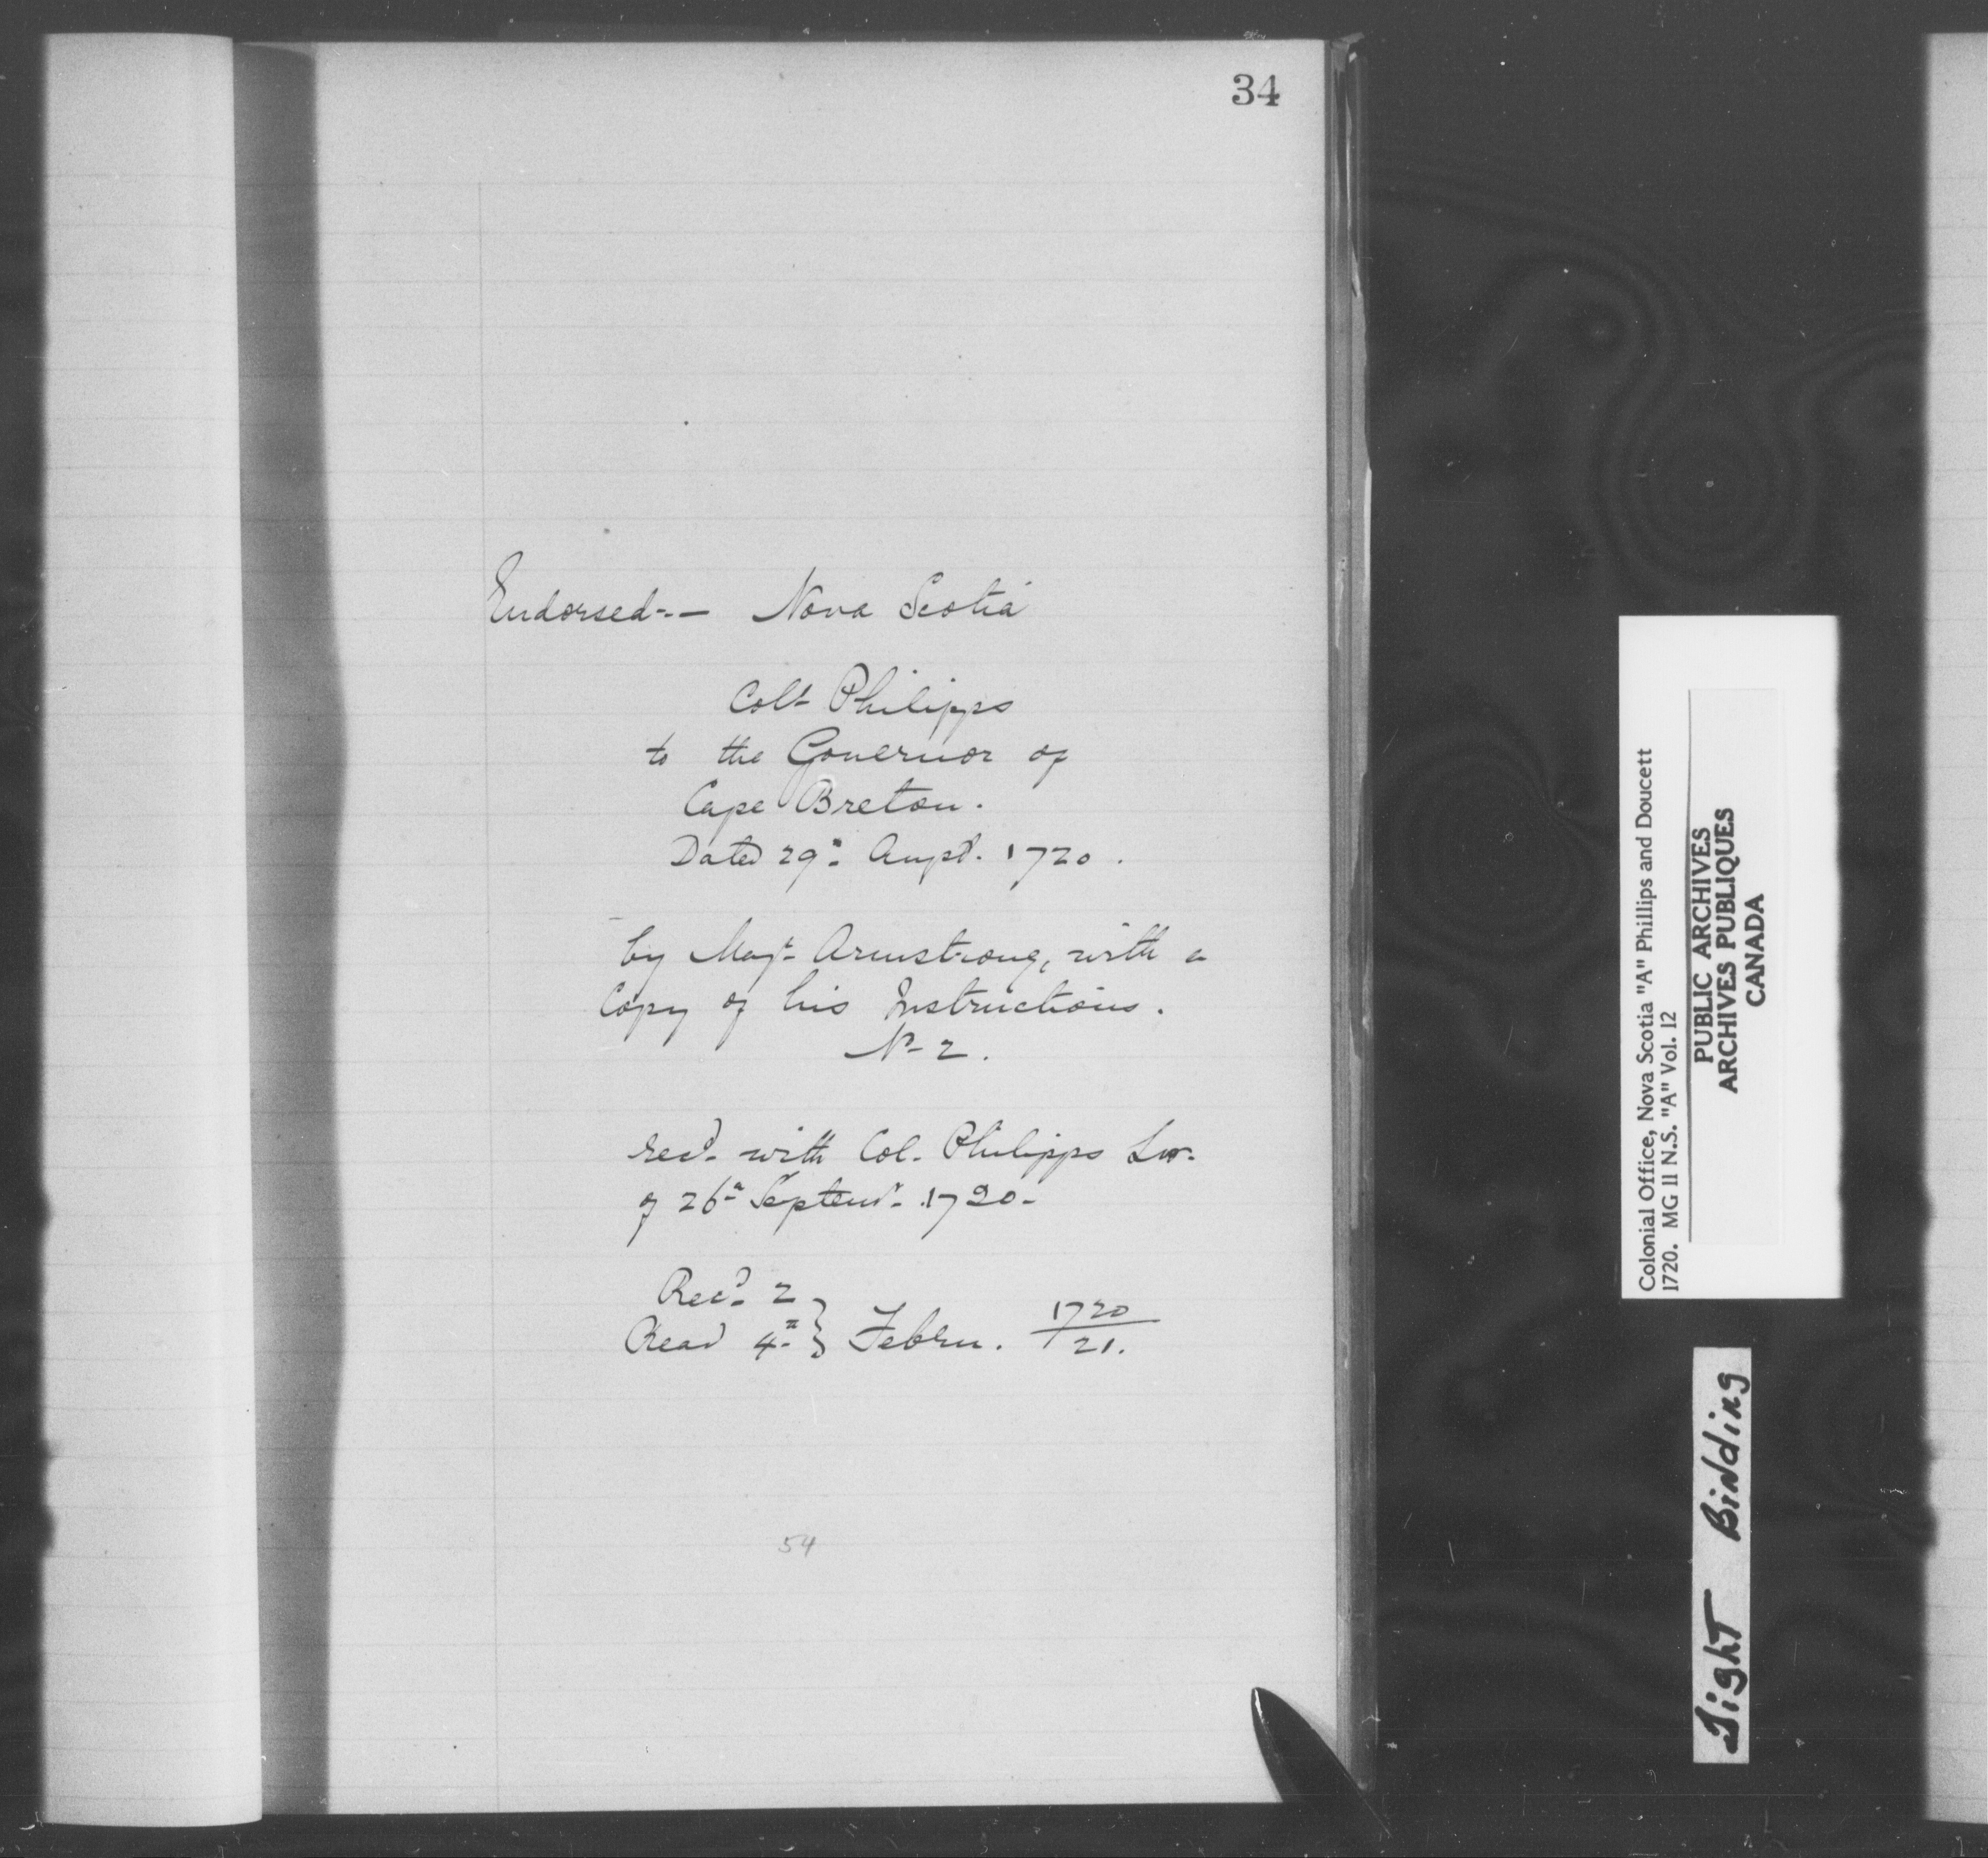 34
Endorsed -- Nova Scotia
Coll Philipps
to the Governor of
Cape Breton.
Dated 29th Augst. 1720.
by Majr Armstrong, with a
Copy of his Instructions.
No 2.
recd with Col. Philipps Lre
of 26th Septemr 1720-
Recd 2
Read 4th } Febru. 1720/21.
54
Colonial Office, Nova Scotia "A" Phillips and Doucett
1720. MG 11 N.S. "A" Vol. 12
PUBLIC ARCHIVES
ARCHIVES PUBLIQUES
CANADA
Tight Binding